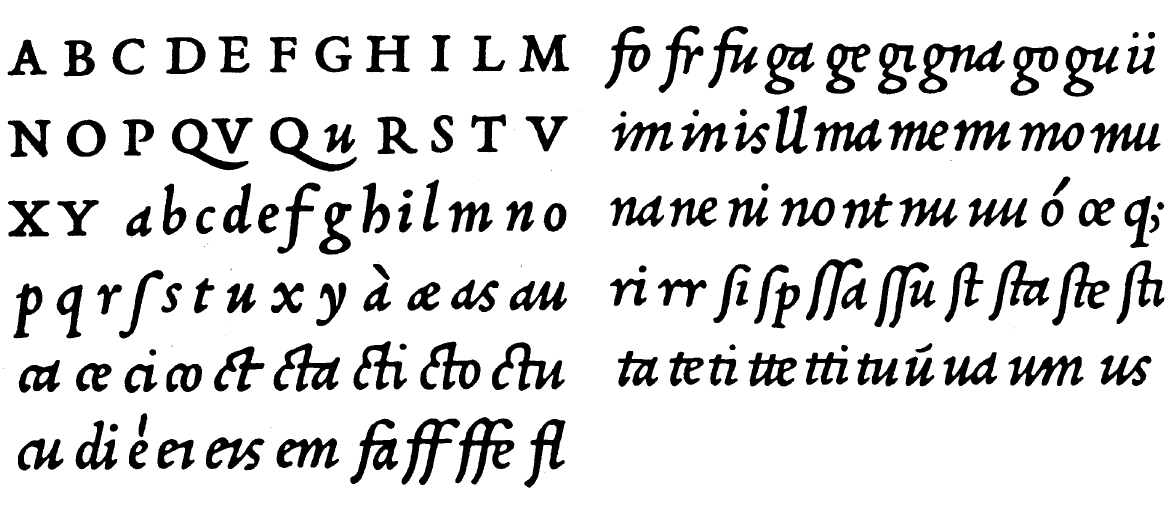 A B C D E F G H I L M
N O P QV Qu R S T V
X Y a b c d e f g h i l m n o
p q r ſ s t u x y à æ as au
ca cæ ci co ct cta cti cto ctu
cu di é ei eis em fa ff ffe fl
fo fr fu ga ge gi gna go gu ii
im in is ll ma me mi mo mu
na ne ni no nt nu uu ó œ q;
ri rr ſi ſp ſſa ſſu ſt ſta ſte ſti
ta te ti tte tti tu ú ua um us